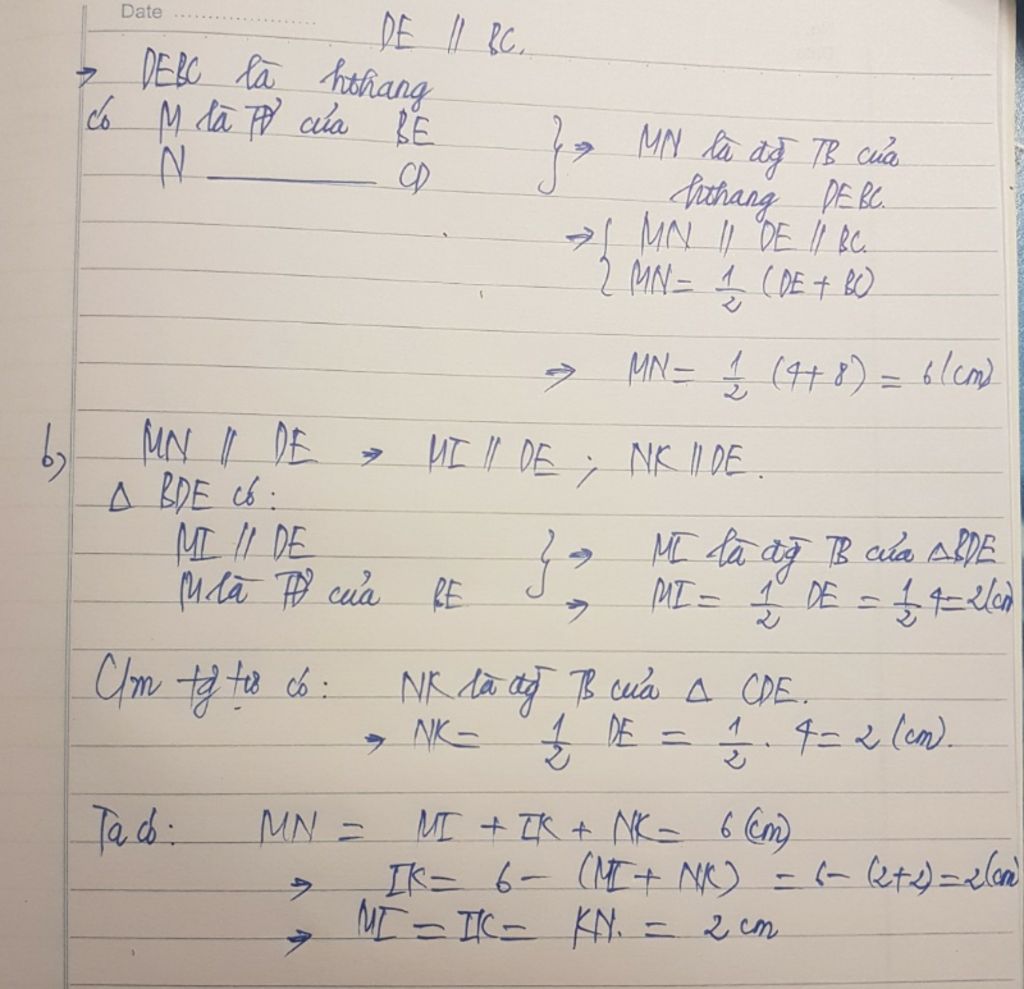 Date
DE // BC.
→ DEBC là hthang
có M là TĐ của BE
N ———— CD
} → MN là đg TB của
hthang DEBC.
→ { MN // DE // BC.
MN = 1/2 (DE + BC)
→ MN = 1/2 (4+8) = 6 (cm)
b) MN // DE → MI // DE ; NK // DE.
Δ BDE có:
MI // DE } → MI là đg TB của Δ BDE
M là TĐ của BE → MI = 1/2 DE = 1/2 4 = 2 (cm)
C/m tg tự có: NK là đg TB của Δ CDE.
→ NK = 1/2 DE = 1/2 . 4 = 2 (cm).
Ta có: MN = MI + IK + NK = 6 (cm)
→ IK = 6 - (MI + NK) = 6 - (2+2) = 2 (cm)
→ MI = IK = KN. = 2 cm